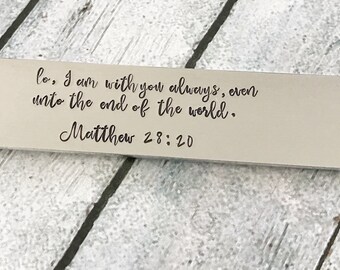 lo, I am with you always, even
unto the end of the world.
Matthew 28:20